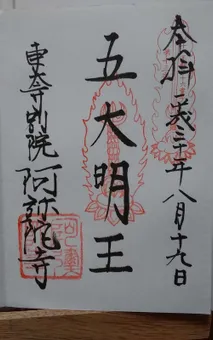 奉拝 平成三十一年八月十九日
五大明王
東大寺別院 阿弥陀寺